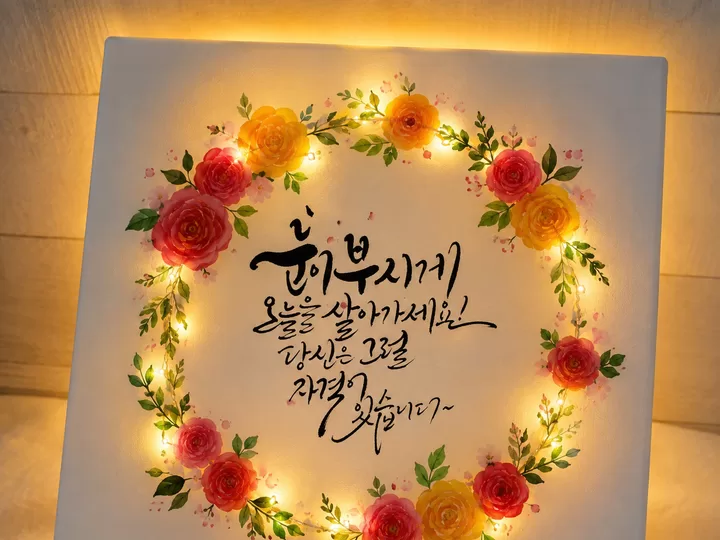 눈이 부시게
오늘을 살아가세요!
당신은 그럴
자격이
있습니다~